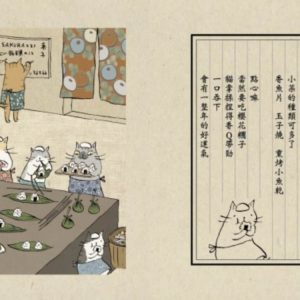 SAKURA
小菜的種類可多了
香魚片 玉子燒 煎烤小魚乾
點心嘛
當然要吃櫻花糰子
貓掌揉捏得香Q帶勁
一口吞下
會有一整年的好運氣